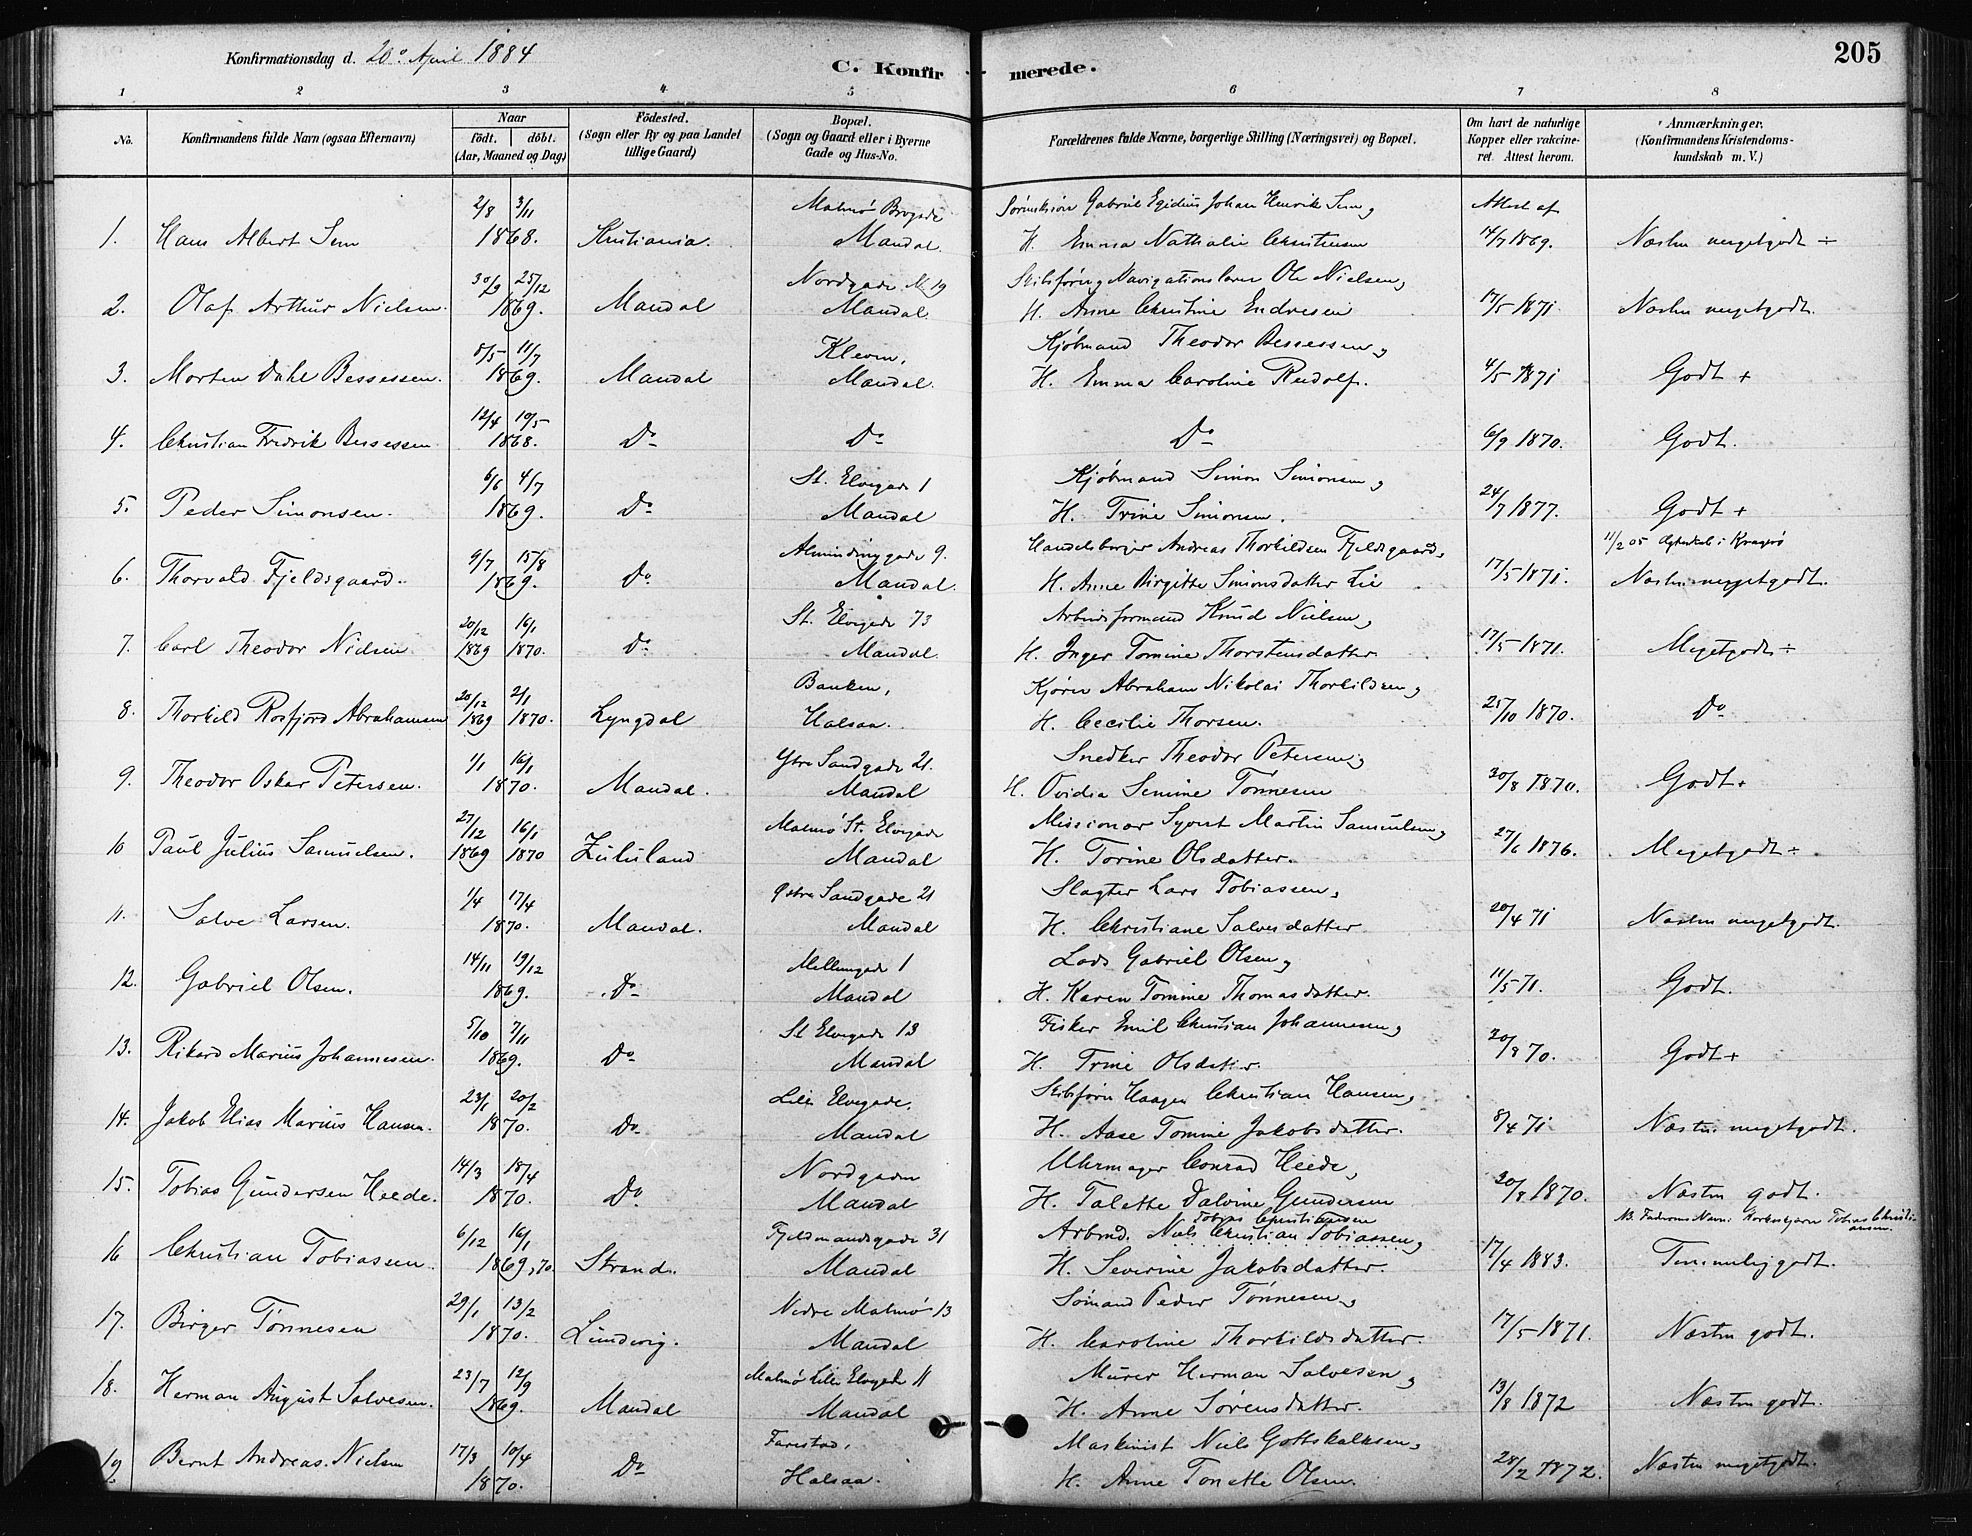 Konfirmationsdag d. 20de April 1884
C. Konfirmerede.
205
1 2 3 4 5 6 7 8
No.
Konfirmandens fulde Navn (ogsaa Efternavn)
Naar
födt. döbt.
(Aar, Maaned og Dag)
Födested.
(Sogn eller By og paa Landet tillige Gaard)
Bopæl.
(Sogn og Gaard eller i Byerne Gade og Hus-No.
Forældrenes fulde Navne, borgerlige Stilling (Næringsvei) og Bopæl.
Om havt de naturlige Kopper eller vakcineret. Attest herom.
Anmærkninger.
(Konfirmandens Kristendomskundskab m. V.)
2/8 3/11 Malmø Brogade Gabriel Egidius Johan Henrik Sem, Attest af
1. Hans Albert Sem 1868. Kristiania. Mandal H. Emma Nathalie Christensen 14/7 1869. Næsten megetgodt ÷
30/9 25/12 Nordgade No 19 Skibsfører, Navigationslærer Ole Nielsen,
2. Olaf Arthur Nielsen. 1869. Mandal Mandal H. Anne Christine Endresen 17/5 1871. Næsten megetgodt.
8/5 11/7 Kleven, Kjøbmand Theodor Bessessen,
3. Morten Dahl Bessessen. 1869. Mandal Mandal. H. Emma Caroline Rudolf. 4/5 1871 Godt +
12/4 10/5
4. Christian Fredrik Bessessen 1868. Do Do Do 6/9 1870. Godt.
6/6 4/7 St. Elvegade 1 Kjøbmand Simon Simonsen,
5. Peder Simonsen. 1869. Do Mandal H. Trine Simonsen. 24/7 1877. Godt +
9/7 15/8 Almindinggade 9. Handelsborger Andreas Thorkildsen Fjeldsgaard, 11/2 05 Ægteskab i Kragerø
6. Thorvald Fjeldsgaard. 1869. Do Mandal. H. Anne Birgitte Simonsdatter Lie 17/5 1871. Næsten megetgodt.
20/12 16/1 St. Elvegade 73 Arbeidsformand Knud Nielsen,
7. Carl Theodor Nielsen 1869 1870. Do Mandal H. Inger Tomine Thorstensdatter. 17/5 1871. Megetgodt ÷
20/12 2/1 Banken, Abraham Nikolai Thorkildsen,
8. Thorkild Rosfjord Abrahamsen 1869 1870. Lyngdal Halsaa. H. Cecilie Thorsen. 25/10 1870. Do
1/1 16/1 Ytre Sandgade 21. Snedker Theodor Petersen,
9. Theodor Oskar Petersen. 1870. Mandal. Mandal H. Ovidia Semine Tønnesen 30/8 1870. Godt +
27/12 16/1 Malmø St. Elvegade Missionær Syvert Martin Samuelsen,
10 Paul Julius Samuelsen. 1869 1870 Zululand Mandal H. Torine Olsdatter. 27/6 1876. Megetgodt ÷
1/4 17/4 Østre Sandgade 21 Slagter Lars Tobiassen,
11. Salve Larsen. 1870. Mandal. Mandal H. Christiane Salvesdatter 20/4 71 Næsten megetgodt.
14/11 19/12 Mellemgade 1 Lods Gabriel Olsen,
12. Gabriel Olsen. 1869. Do Mandal H. Karen Tomine Thomasdatter. 11/5 71. Godt.
5/10 7/11 St Elvegade 13 Fisker Emil Christian Johannesen,
13. Rikard Marius Johannesen. 1869. Do Mandal H. Trine Olsdatter. 20/8 70. Godt +
23/1 20/2 Lille Elvegade. Skibsfører Haagen Christian Hansen,
14. Jakob Elias Marius Hansen. 1870. Do Mandal H. Aase Tomine Jakobsdatter. 8/4 71 Næsten megetgodt.
14/3 18/4 Nordgaden Uhrmager Conrad Heede,
15. Tobias Gundersen Heede. 1870. Do Mandal H. Talette Dalvine Gundersen 20/8 1870. Næsten godt.
6/12 16/1 Fjeldmandsgade 31 Tobias Christiansen NB. Faderens Navn: Tobias Christiansen.
Arbmd. Niels Christian Tobiassen,
16 Christian Tobiassen. 1869, 70. Strand. Mandal H. Severine Jakobsdatter. 17/4 1883. Temmelig godt.
29/1 13/2 Nedre Malmø 13 Sømand Peder Tønnesen,
17. Birger Tønnesen 1870. Lundevig. Mandal H. Caroline Thorkildsdatter. 17/5 1871. Næsten godt.
23/7 12/9 Malmø Lille Elvegade 11 Murer Herman Salvesen,
18. Herman August Salvesen. 1869. Mandal Mandal H. Anne Sørensdatter. 13/8 1872 Næsten godt.
17/3 10/4 Farestad, Maskinist Niels Gottskalksen,
19 Bernt Andreas Nielsen 1870. Do Halsaa. H. Anne Tonette Olsen. 28/2 1872. Næsten megetgodt.